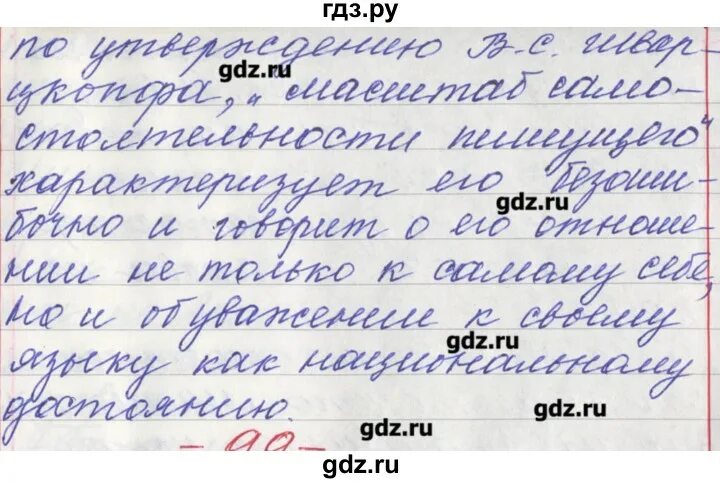 гдз.ру
по утверждению В.С. Швар-
gdz.ru
цкопфа, „масштаб само-
стоятельности пишущего"
характеризует его безоши-
gdz.ru
бочно и говорит о его отноше-
нии не только к самому себе,
но и об уважении к своему
gdz.ru
языку как национальному
достоянию.
gdz.ru
gdz.ru
- 99 -
gdz.ru